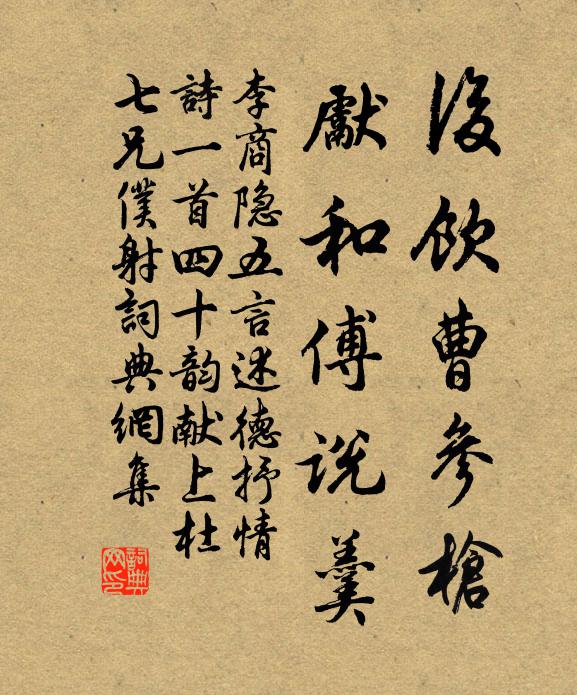 後飲曹參槍
獻和傅說羹
李商隐五言述德抒情
詩一首四十韵献上杜
七兄僕射詞典網集
詞典网印